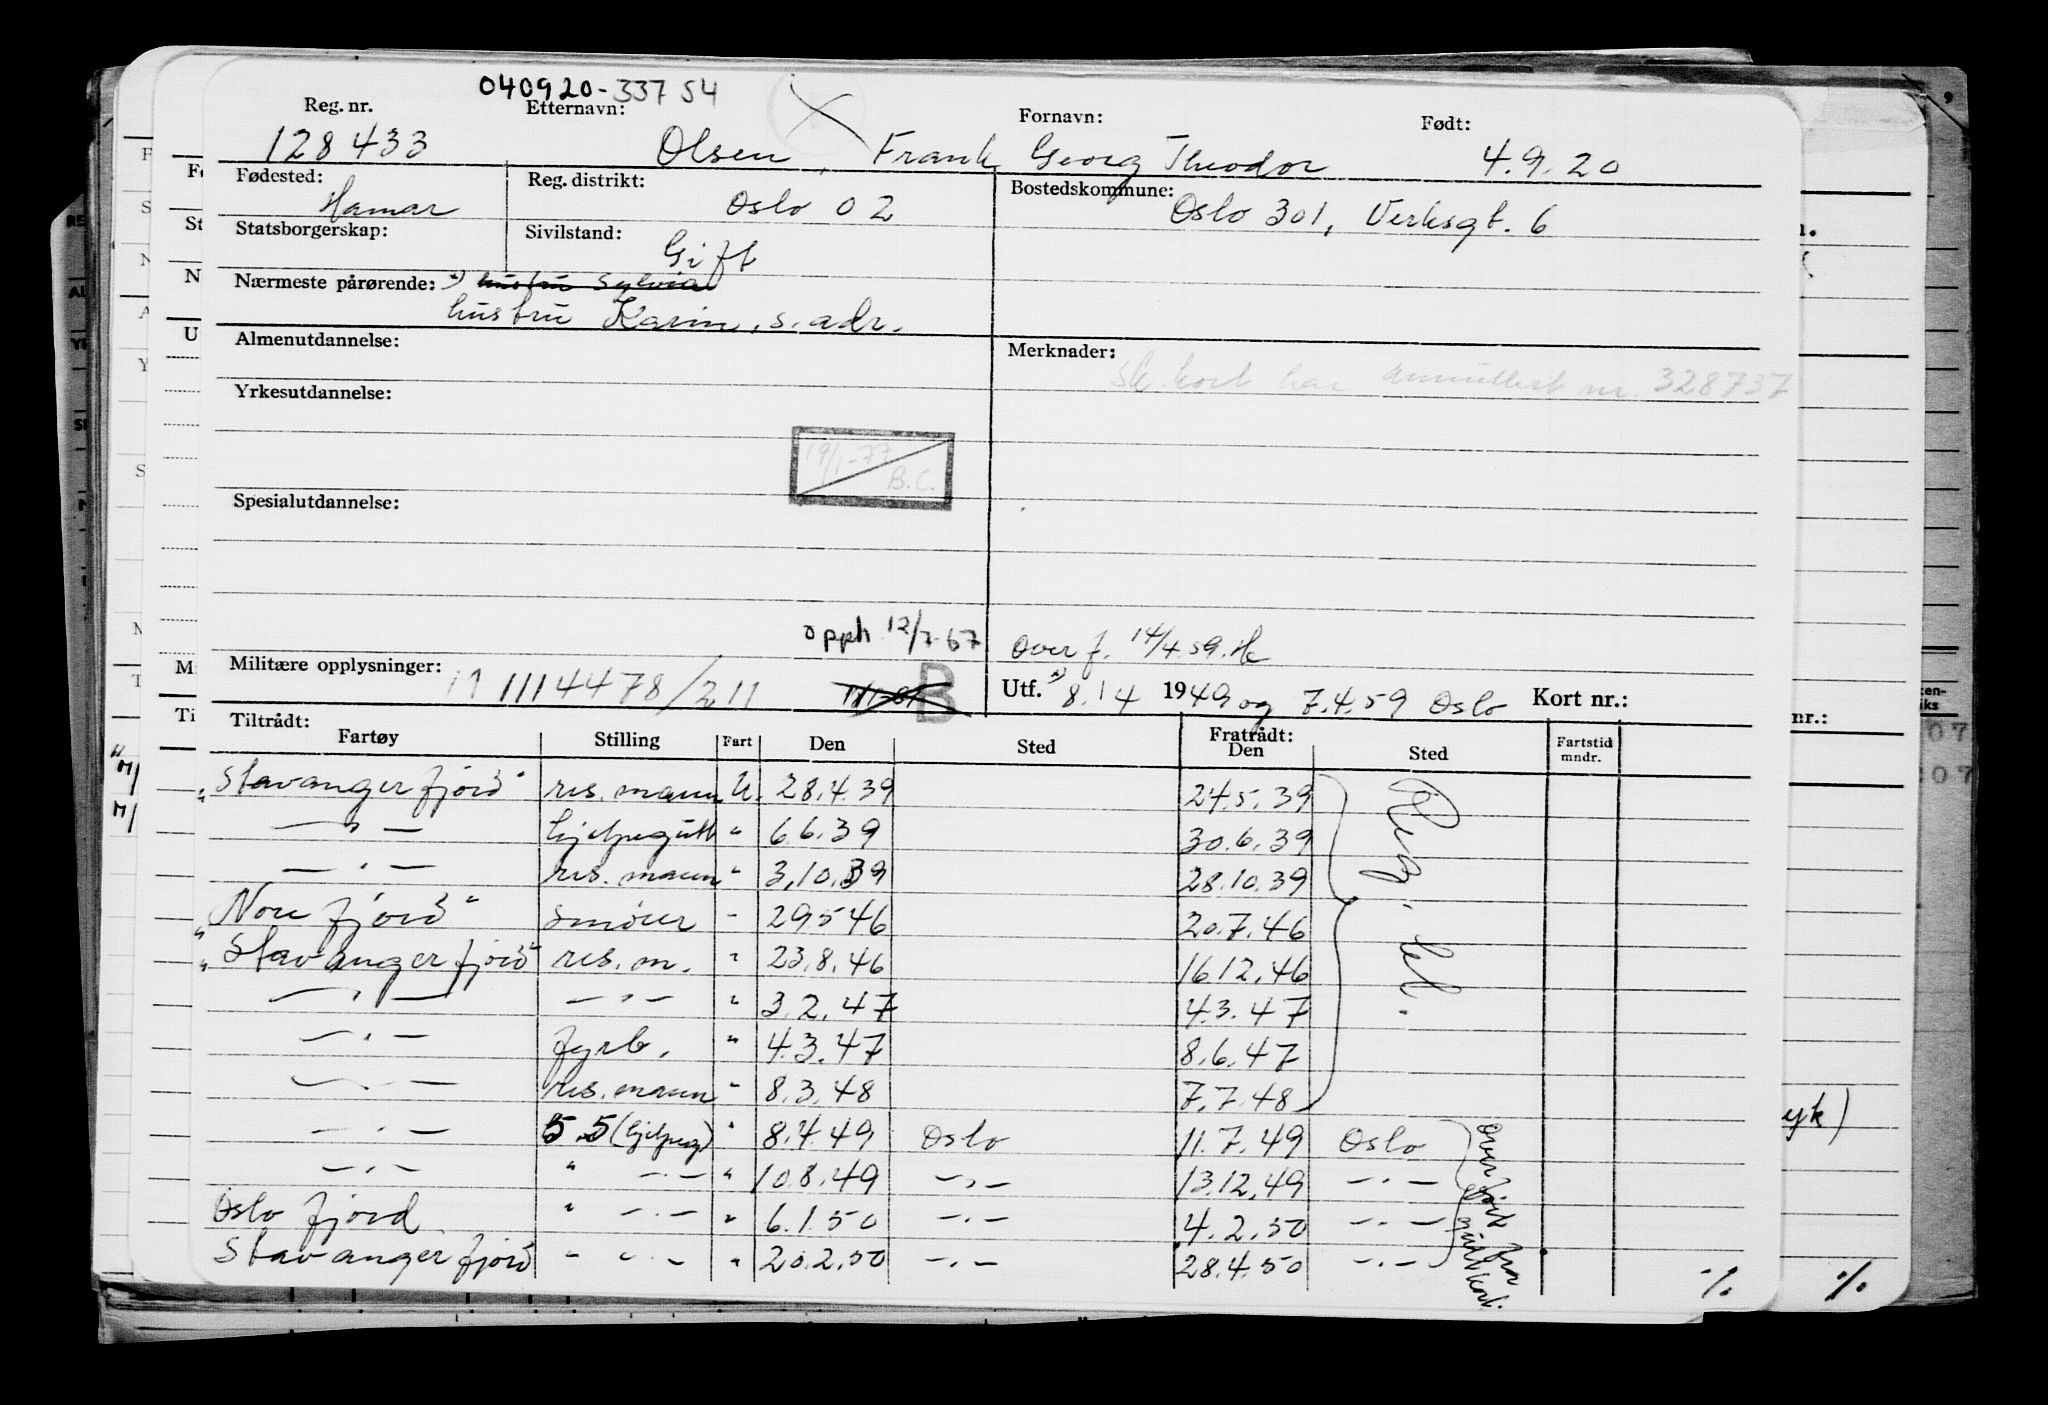 040920-33754
Reg. nr. Etternavn: Fornavn: Født:
128433 Olsen, Frank Georg Theodor 4.9.20
Fødested: Reg. distrikt: Bostedskommune:
Hamar Oslo 02 Oslo 301, Verksgt. 6
Statsborgerskap: Sivilstand:
Gift
Nærmeste pårørende: hustru Sylvia
hustru Karin, s. adr.
Almenutdannelse: Merknader:
sk. kort har annullert nr. 328737
Yrkesutdannelse:
19/1-77
B.C.
Spesialutdannelse:
opph 12/7-67 Over f. 14/4.59. Hc
Militære opplysninger: 1114478/211 B Utf. 8.14 1949 og 7.4.59 Oslo Kort nr.:
Tiltrådt: Fratrådt:
Fartøy Stilling Fart Den Sted Den Sted Fartstid mndr.
"Stavangerfjord" res. mann U. 28.4.39 24.5.39
— " — hjelpegutt " 6.6.39 30.6.39
— " — res. mann " 3.10.39 28.10.39
"Norefjord" smører - 29.5.46 20.7.46
"Stavangerfjord" res. m. " 23.8.46 16.12.46
— " — — " — " 3.2.47 4.3.47
— " — fyrb. " 4.3.47 8.6.47
— " — res. mann " 8.3.48 7.7.48
— " — 5.5 (hjelpeg) " 8.4.49 Oslo 11.7.49 Oslo
— " — " — " — " 10.8.49 — " — 13.12.49 — " —
Oslofjord " — " — " 6.1.50 — " — 4.2.50 — " —
Stavangerfjord " — " — " 20.2.50 — " — 28.4.50 — " —
%
%
yk)
nr.:
07
07